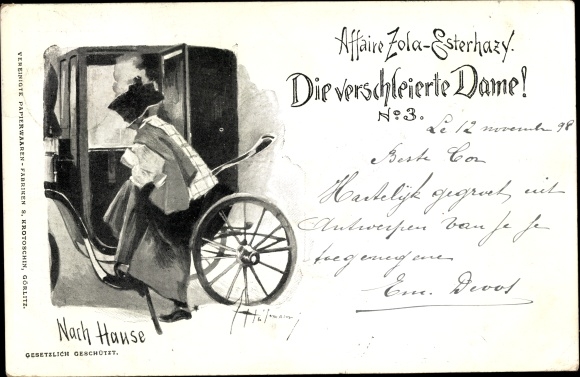 Affaire Zola-Esterhazy.
Die verschleierte Dame!
No 3.
Le 12 november 98
Beste Cor
Hartelijk gegroet uit
Antwerpen van je je
toegenegene
Em. Devos
Nach Hause
GESETZLICH GESCHÜTZT.
VEREINIGTE PAPIERWAAREN-FABRIKEN S. KROTOSCHIN, GÖRLITZ.